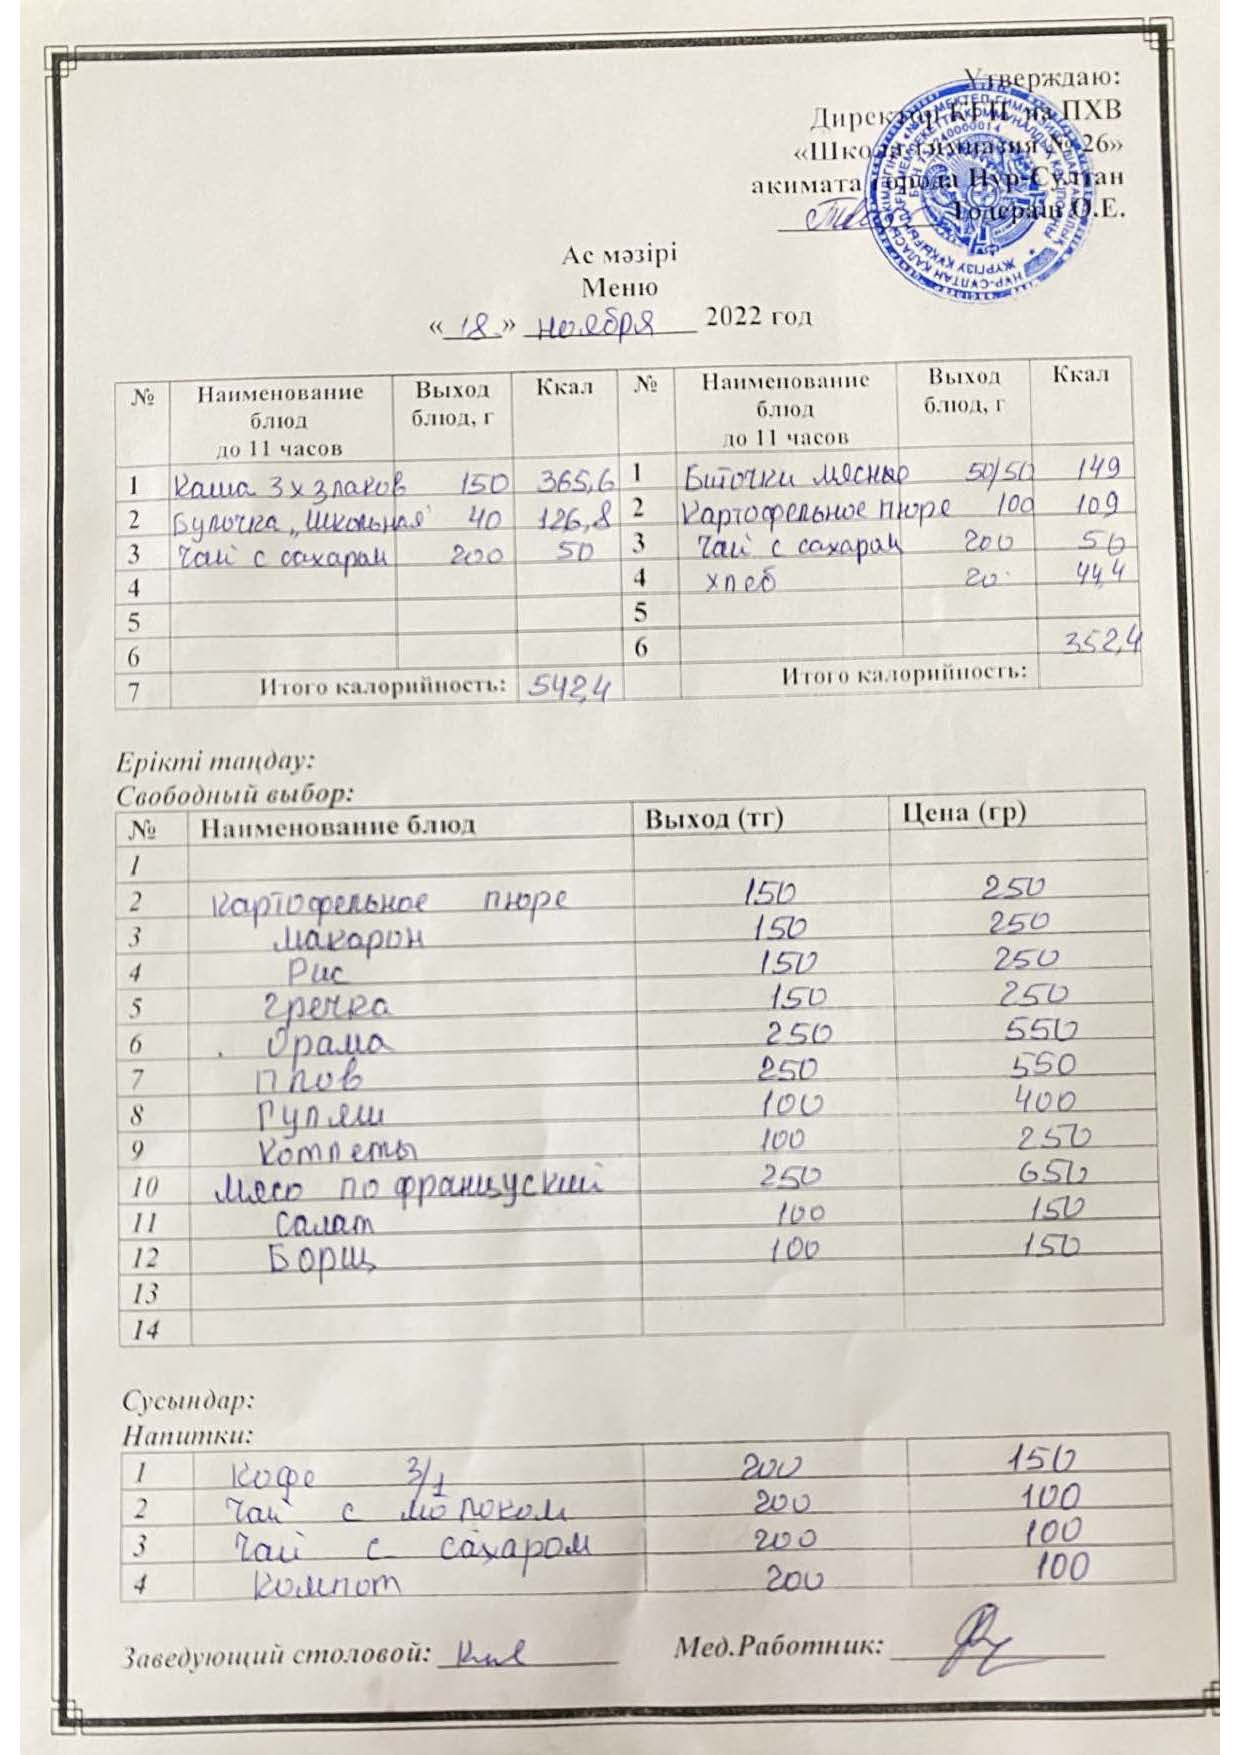 Утверждаю:
Директор КГП на ПХВ
«Школа-гимназия № 26»
акимата города Нур-Султан
Тодераш О.Е.
Ас мәзірі
Меню
«18» ноября 2022 год
№ Наименование блюд до 11 часов Выход блюд, г Ккал № Наименование блюд до 11 часов Выход блюд, г Ккал
1 Каша 3х злаков 150 365,6 1 Биточки мясные 50/50 149
2 Булочка „Школьная" 40 126,8 2 Картофельное пюре 100 109
3 Чай с сахаром 200 50 3 Чай с сахаром 200 50
4 4 хлеб 20 44,4
5 5
6 6 352,4
7 Итого калорийность: 542,4 Итого калорийность:
Ерікті таңдау:
Свободный выбор:
№ Наименование блюд Выход (тг) Цена (гр)
1
2 Картофельное пюре 150 250
3 Макарон 150 250
4 Рис 150 250
5 Гречка 150 250
6 Орама 250 550
7 Плов 250 550
8 Гуляш 100 400
9 Котлеты 100 250
10 Мясо по француский 250 650
11 Салат 100 150
12 Борщ 100 150
13
14
Сусындар:
Напитки:
1 Кофе 3/1 200 150
2 Чай с молоком 200 100
3 Чай с сахаром 200 100
4 Компот 200 100
Заведующий столовой: Мед.Работник: